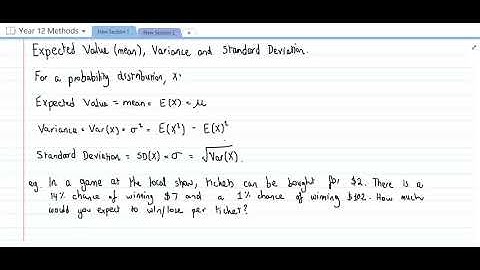 Year 12 Methods
New Section 1
New Section 2
Expected Value (mean), Variance and Standard Deviation.
For a probability distribution, X:
Expected Value = mean = E(X) = μ
Variance = Var(X) = σ² = E(X²) - E(X)²
Standard Deviation = SD(X) = σ = √Var(X).
eg. In a game at the local show, tickets can be bought for $2. There is a
14% chance of winning $7 and a 1% chance of winning $102. How much
would you expect to win/lose per ticket?